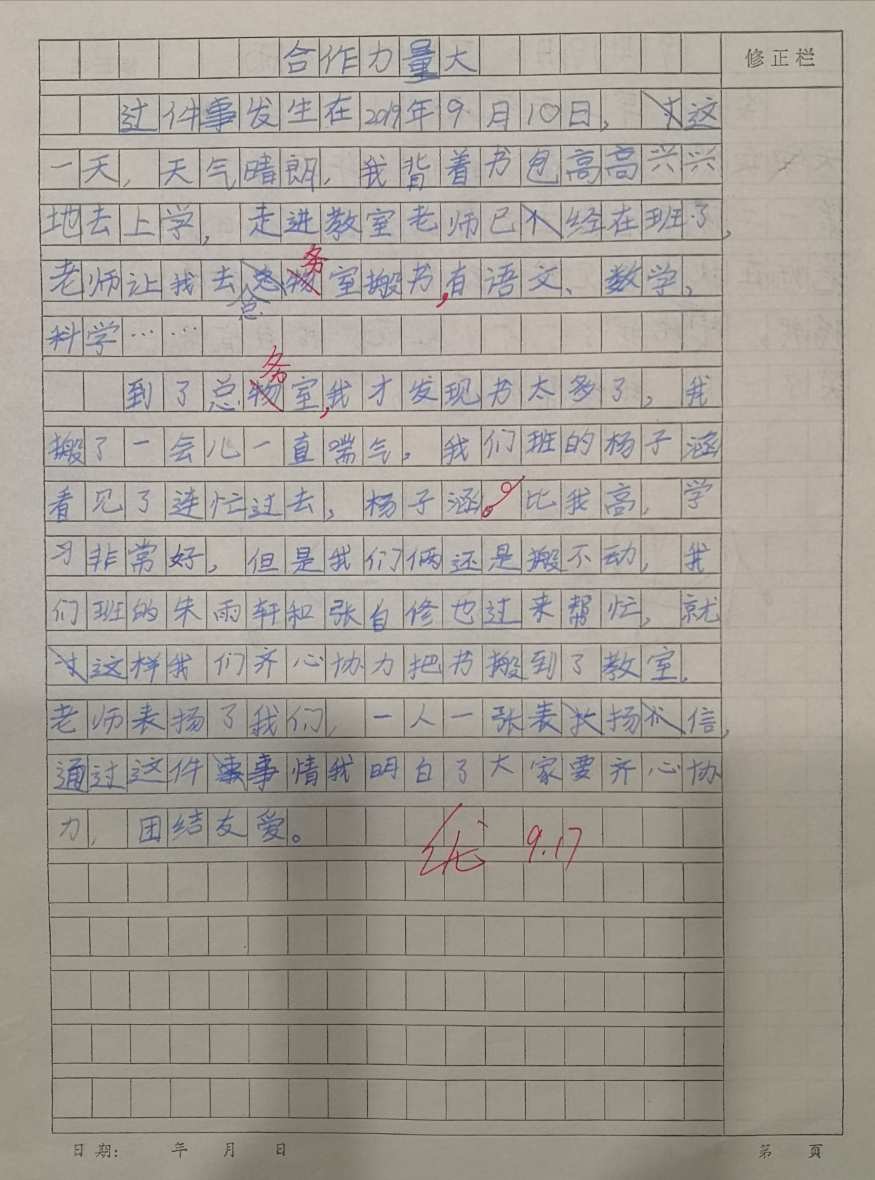 合作力量大
修正栏
过件事发生在2019年9月10日,这
一天,天气晴朗,我背着书包高高兴兴
地去上学,走进教室老师已经在班了,
务
老师让我去总物室搬书,有语文、数学、
科学……
务
到了总物室,我才发现书太多了,我
搬了一会儿一直喘气。我们班的杨子涵
看见了连忙过去,杨子涵比我高,学
习非常好,但是我们俩还是搬不动,我
们班的朱雨轩和张自修也过来帮忙,就
这样我们齐心协力把书搬到了教室,
老师表扬了我们,一人一张表扬信,
通过这件事情我明白了大家要齐心协
力,团结友爱。
优 9.17
日期: 年 月 日 第 页